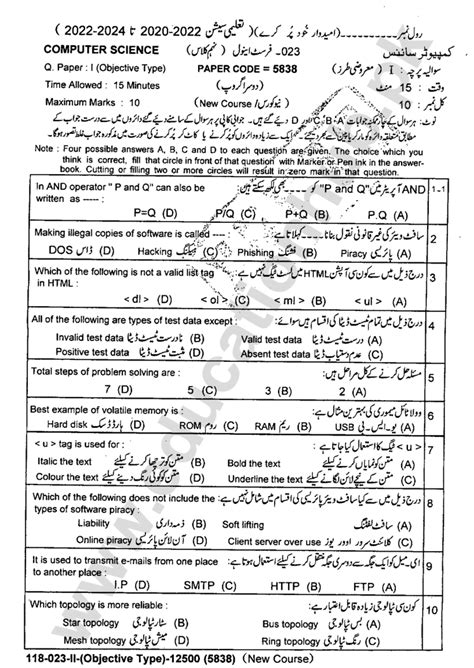 رول نمبر ---------- (امیدوار خود پُر کرے) (تعلیمی سیشن 2022-2020 تا 2024-2022)
COMPUTER SCIENCE 023- فرسٹ اینول - (نہم کلاس) کمپیوٹر سائنس
Q. Paper : I (Objective Type) PAPER CODE = 5838 سوالیہ پرچہ : I (معروضی طرز)
Time Allowed : 15 Minutes (دوسرا گروپ) وقت : 15 منٹ
Maximum Marks : 10 (New Course / نیو کورس) کل نمبر : 10
Note : Four possible answers A, B, C and D to each question are given. The choice which you
think is correct, fill that circle in front of that question with Marker or Pen ink in the answer-
book. Cutting or filling two or more circles will result in zero mark in that question.
1-1 AND آپریٹر میں "P and Q" کو ---- بھی لکھ سکتے ہیں: In AND operator " P and Q" can also be
written as ----- :
P=Q (D) P/Q (C) P+Q (B) P.Q (A)
2 سافٹ ویئر کی غیر قانونی نقول بنانا ---- کہلاتا ہے: Making illegal copies of software is called ---- :
DOS ڈاس (D) Hacking ہیکنگ (C) Phishing فشنگ (B) Piracy پائریسی (A)
3 درج ذیل میں سے کون سی آپشن HTML میں لسٹ ٹیگ نہیں ہے: Which of the following is not a valid list tag
in HTML :
< dl > (D) < ol > (C) < ml > (B) < ul > (A)
4 درج ذیل میں تمام ٹیسٹ ڈیٹا کی اقسام ہیں سوائے: All of the following are types of test data except :
Invalid test data نادرست ٹیسٹ ڈیٹا (B) Valid test data درست ٹیسٹ ڈیٹا (A)
Positive test data مثبت ٹیسٹ ڈیٹا (D) Absent test data عدم دستیاب ڈیٹا (C)
5 مسئلہ حل کرنے کے کل مراحل ہیں: Total steps of problem solving are :
7 (D) 5 (C) 3 (B) 2 (A)
6 وولاٹائل میموری کی بہترین مثال ہے: Best example of volatile memory is :
Hard disk ہارڈ ڈسک (D) ROM روم (C) RAM ریم (B) USB یو۔ایس۔بی (A)
7 < u > ٹیگ کا استعمال کیا جاتا ہے: < u > tag is used for :
Italic the text متن کو ترچھا کرنے کیلئے (B) Bold the text متن کو نمایاں کرنے کیلئے (A)
Colour the text متن کو کوئی رنگ دینے کیلئے (D) Underline the text متن کے نیچے لائن لگانے کیلئے (C)
8 درج ذیل میں سے کونسا سافٹ ویئر پائریسی کی اقسام میں شامل نہیں ہے: Which of the following does not include the
types of software piracy :
Liability ذمہ داری (B) Soft lifting سافٹ لفٹنگ (A)
Online piracy آن لائن پائریسی (D) Client server over use کلائنٹ سرور اوور یوز (C)
9 ای۔میل کو ایک جگہ سے دوسری جگہ منتقل کرنے کیلئے استعمال ہوتا ہے: It is used to transmit e-mails from one place
to another place :
I.P (D) SMTP (C) HTTP (B) FTP (A)
10 کون سی ٹپالوجی زیادہ قابل اعتبار ہے: Which topology is more reliable :
Star topology سٹار ٹپالوجی (B) Bus topology بس ٹپالوجی (A)
Mesh topology میش ٹپالوجی (D) Ring topology رنگ ٹپالوجی (C)
118-023-II-(Objective Type)-12500 (5838) (New Course)